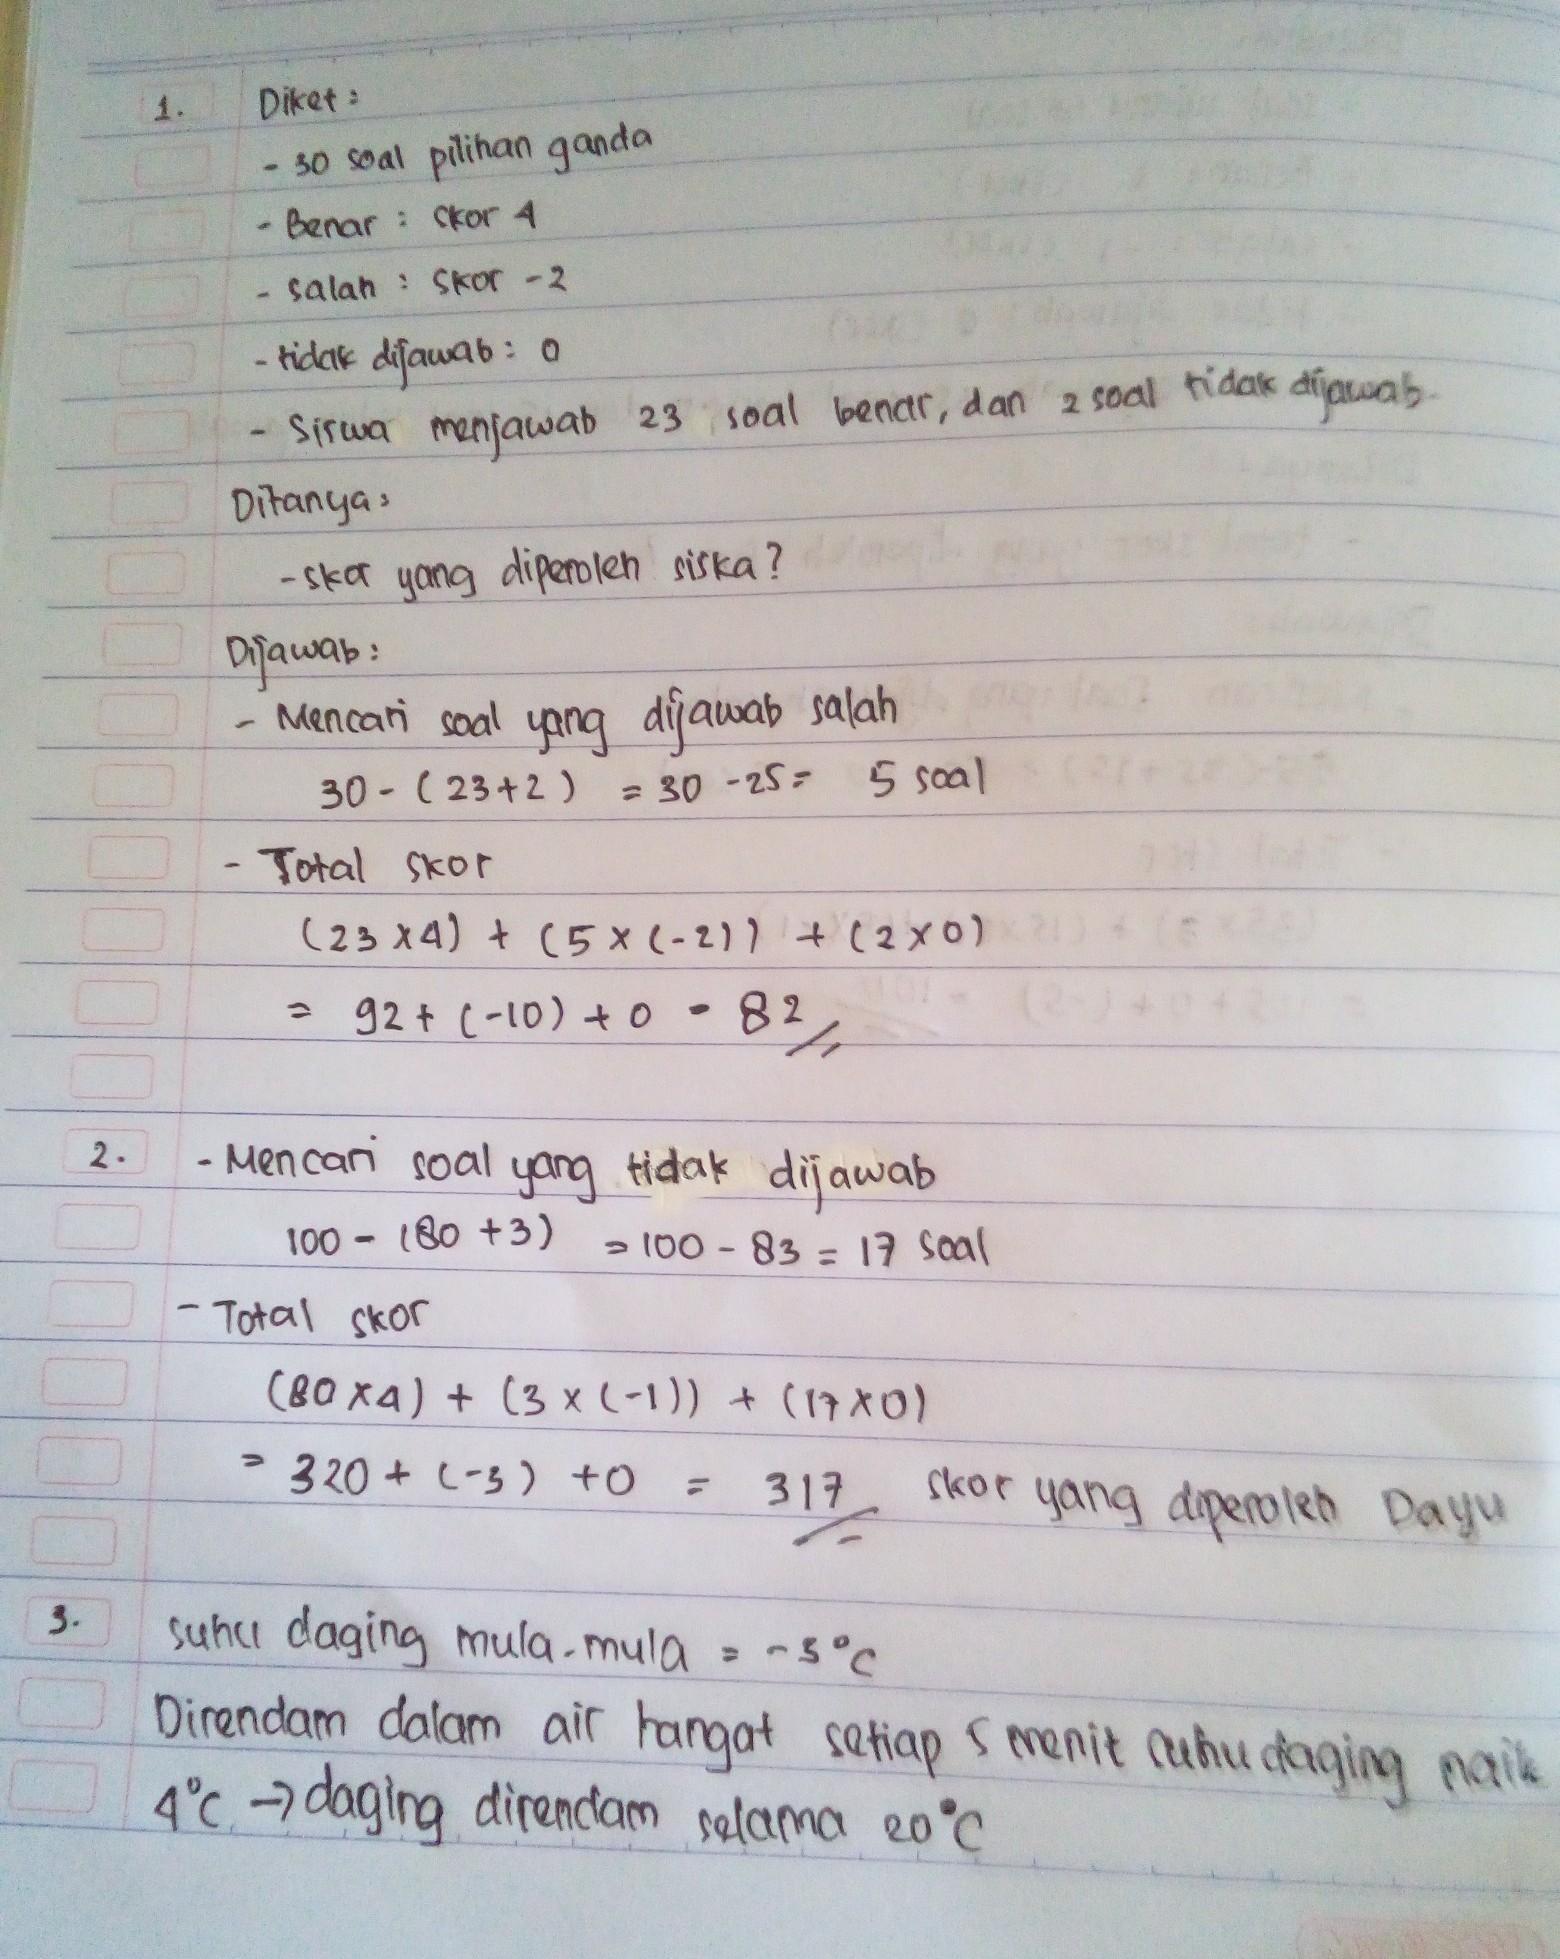 1. Diket :
- 30 soal pilihan ganda
- Benar : skor 4
- salah : skor -2
- tidak dijawab : 0
- Siswa menjawab 23 soal benar, dan 2 soal tidak dijawab.
Ditanya :
- skor yang diperoleh siska ?
Dijawab :
- Mencari soal yang dijawab salah
30 - ( 23+2 ) = 30 - 25 = 5 soal
- Total skor
(23 x 4) + (5 x (-2)) + (2 x 0)
= 92 + (-10) + 0 = 82
2. - Mencari soal yang tidak dijawab
100 - (80 + 3) = 100 - 83 = 17 soal
- Total skor
(80 x 4) + (3 x (-1)) + (17 x 0)
= 320 + (-3) + 0 = 317 skor yang diperoleh Dayu
3. suhu daging mula-mula = -5°C
Direndam dalam air hangat setiap 5 menit suhu daging naik
4°C → daging direndam selama 20°C